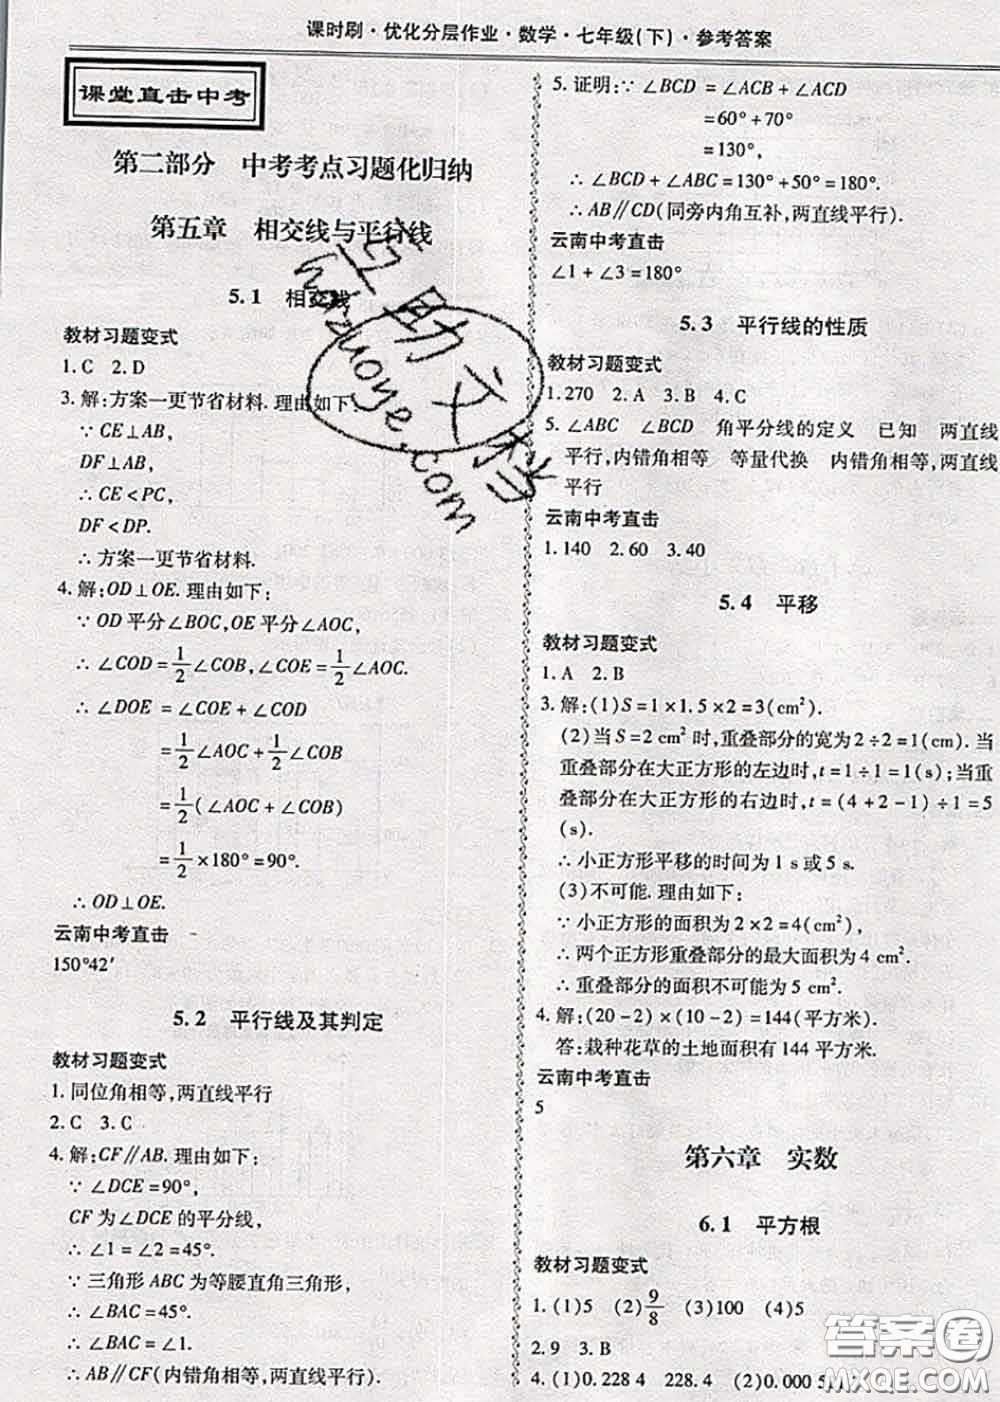 课时刷·优化分层作业·数学·七年级(下)·参考答案
课堂直击中考
第二部分 中考考点习题化归纳
第五章 相交线与平行线
5.1 相交线
教材习题变式
1.C 2.D
3.解:方案一更节省材料.理由如下:
∵CE⊥AB,
DF⊥AB,
∴CE<PC,
DF<DP.
∴方案一更节省材料.
4.解:OD⊥OE.理由如下:
∵OD平分∠BOC,OE平分∠AOC,
∴∠COD=1/2∠COB,∠COE=1/2∠AOC.
∴∠DOE=∠COE+∠COD
=1/2∠AOC+1/2∠COB
=1/2(∠AOC+∠COB)
=1/2×180°=90°.
∴OD⊥OE.
云南中考直击
150°42′
5.2 平行线及其判定
教材习题变式
1.同位角相等,两直线平行
2.C 3.C
4.解:CF∥AB.理由如下:
∵∠DCE=90°,
CF为∠DCE的平分线,
∴∠1=∠2=45°.
∵三角形ABC为等腰直角三角形,
∴∠BAC=45°.
∴∠BAC=∠1.
∴AB∥CF(内错角相等,两直线平行).
5.证明:∵∠BCD=∠ACB+∠ACD
=60°+70°
=130°,
∴∠BCD+∠ABC=130°+50°=180°.
∴AB∥CD(同旁内角互补,两直线平行).
云南中考直击
∠1+∠3=180°
5.3 平行线的性质
教材习题变式
1.270 2.A 3.B 4.C
5.∠ABC ∠BCD 角平分线的定义 已知 两直线
平行,内错角相等 等量代换 内错角相等,两直线
平行
云南中考直击
1.140 2.60 3.40
5.4 平移
教材习题变式
1.A 2.B
3.解:(1)S=1×1.5×2=3(cm²).
(2)当S=2 cm²时,重叠部分的宽为2÷2=1(cm).当
重叠部分在大正方形的左边时,t=1÷1=1(s);当重
叠部分在大正方形的右边时,t=(4+2-1)÷1=5
(s).
∴小正方形平移的时间为1 s或5 s.
(3)不可能.理由如下:
∵小正方形的面积为2×2=4(cm²),
∴两个正方形重叠部分的最大面积为4 cm².
∴重叠部分的面积不可能为5 cm².
4.解:(20-2)×(10-2)=144(平方米).
答:栽种花草的土地面积有144平方米.
云南中考直击
5
第六章 实数
6.1 平方根
教材习题变式
1.(1)5 (2)9/8 (3)100 (4)5
2.9 3.B
4.(1)0.228 4 228.4 (2)0.000 5
互助文档
hzuoye.com
答案圈
MXQE.COM